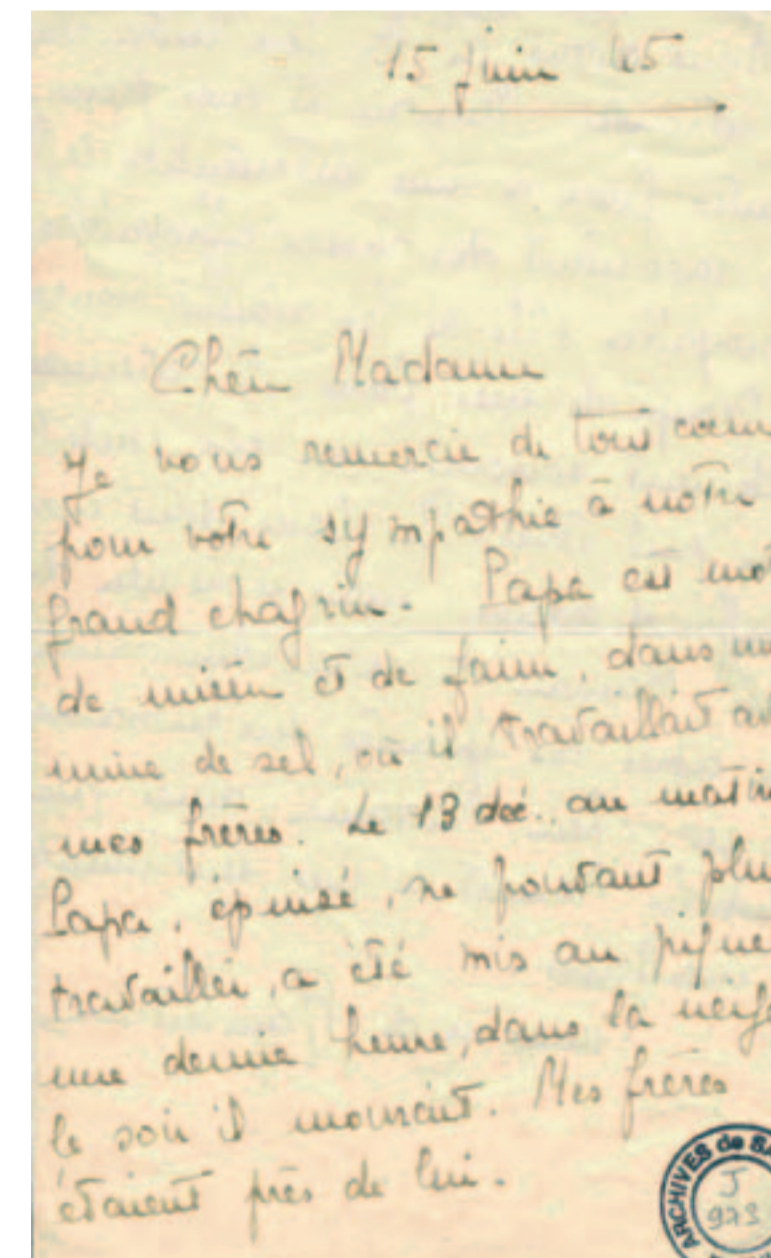 15 juin 45
Chère Madame
Je vous remercie de tout coeur
pour votre sympathie à notre
grand chagrin. Papa est mo
de misère et de faim, dans un
mine de sel, où il travaillait av
mes frères. Le 13 déc., au matin
Papa, épuisé, ne pouvant plu
travailler, a été mis au pique
une demie heure, dans la neige
le soir il mourait. Mes frères
étaient près de lui.
ARCHIVES de SA
J
923